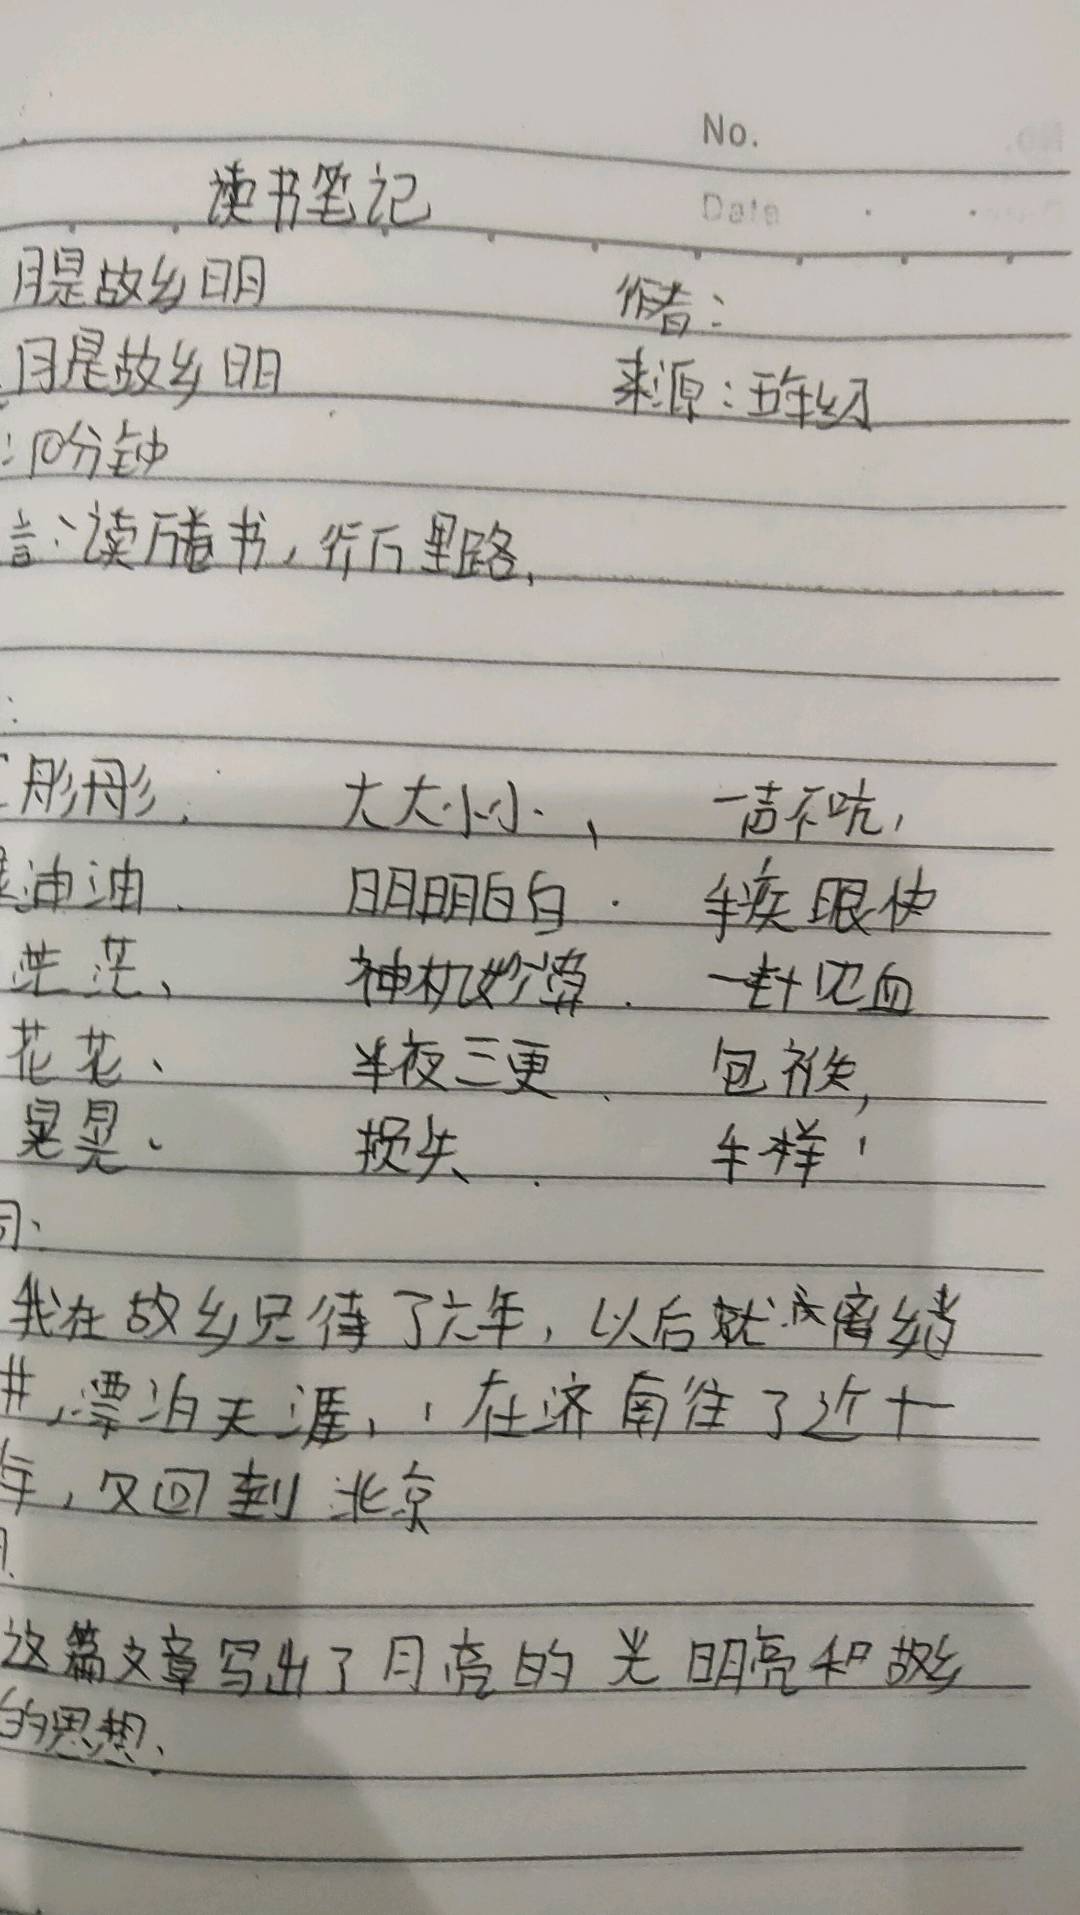 No.
读书笔记
Date
月是故乡明 作者：
月是故乡明 来源：五年级
：10分钟
言：读万卷书，行万里路，
：
彤彤， 大大小小、 一声不吭，
油油、 明明白白． 手疾眼快
茫茫、 神机妙算． 一针见血
花花、 半夜三更、 包袱，
晃晃、 损失． 车样，
词：
我在故乡只待了六年，以后就离
井，漂泊天涯，在济南住了近十
年，又回到北京
这篇文章写出了月亮的光明亮和故乡
的思想、